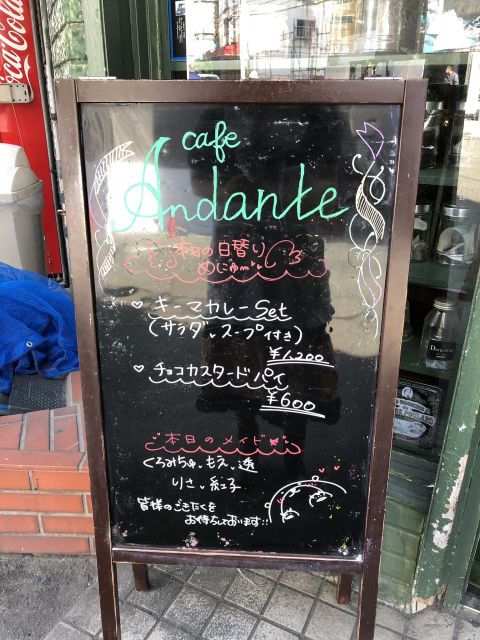 Coca-Cola
cafe
Andante
本日の日替り
めにゅー
キーマカレーSet
(サラダ、スープ付き)
¥1,200
チョコカスタードパイ
¥600
本日のメイド
くろみちゅ、もえ、透
りさ、紅子
皆様のごきたくを
お待ちしております!!